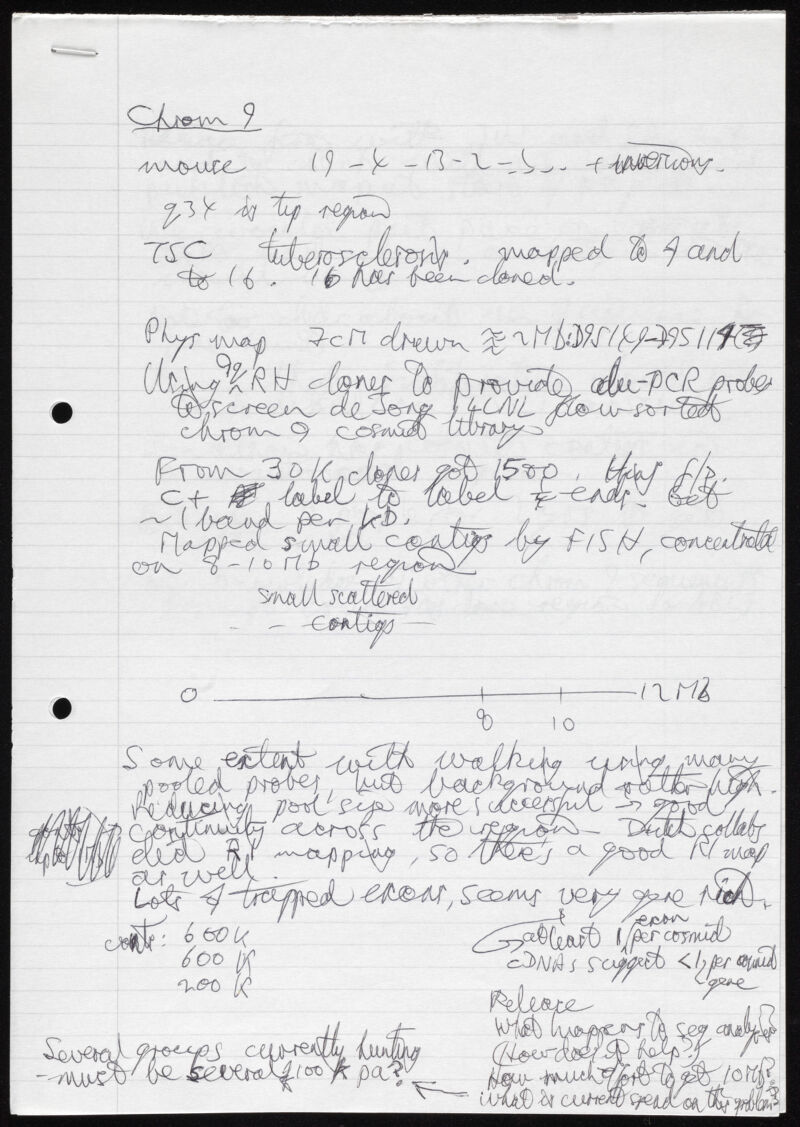 Chrom 9
mouse 19 - 4 - 13 - 2 - 5 .. + inversions.
q34 is tip region
TSC tuberosclerosis. mapped to 9 and
to 16. 16 has been cloned.
Phys map 7cM drewn ≈ 2Mb:
Using 9q RH clones to provide alu-PCR probes
to screen de Jong LLNL flow sorted
chrom 9 cosmid library
From 30K clones got 1500. Using
C+ label to label ends. Get
~ 1 band per kb.
Mapped small contigs by FISH, concentrated
on 8-10 Mb region
small scattered
- - contigs -
0 12 Mb
8 10
Some extent with walking using many
pooled probes, but background rather high.
Reducing pool size more successful → good
continuity across the region - Dutch collabs
did RI mapping, so there's a good RI map
as well.
Lots of trapped exons, seems very gene rich.
conts: 600 K
600 K
200 K
at least 1 exon per cosmid
cDNAs suggest <1 per cosmid
gene
Release
What happens to seq analysis?
(How does it help?)
How much effort to get 10Mb?
What is current spend on this problem?
Several groups currently hunting
- must be several £100k pa?